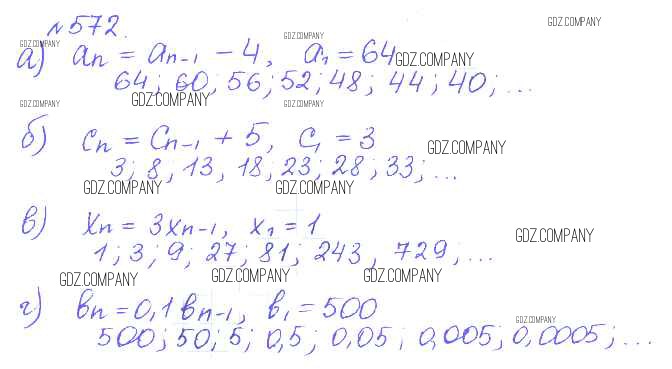 №572.
GDZ.COMPANY
GDZ.COMPANY
GDZ.COMPANY
а) aₙ = aₙ₋₁ − 4, a₁ = 64
GDZ.COMPANY
64; 60; 56; 52; 48; 44; 40; ...
GDZ.COMPANY
GDZ.COMPANY
GDZ.COMPANY
б) cₙ = cₙ₋₁ + 5, c₁ = 3
GDZ.COMPANY
3; 8; 13, 18; 23; 28; 33; ...
GDZ.COMPANY
GDZ.COMPANY
в) xₙ = 3xₙ₋₁, x₁ = 1
GDZ.COMPANY
1; 3; 9; 27; 81; 243, 729; ...
GDZ.COMPANY
GDZ.COMPANY
GDZ.COMPANY
г) bₙ = 0,1bₙ₋₁, b₁ = 500
GDZ.COMPANY
500; 50; 5; 0,5; 0,05; 0,005; 0,0005; ...